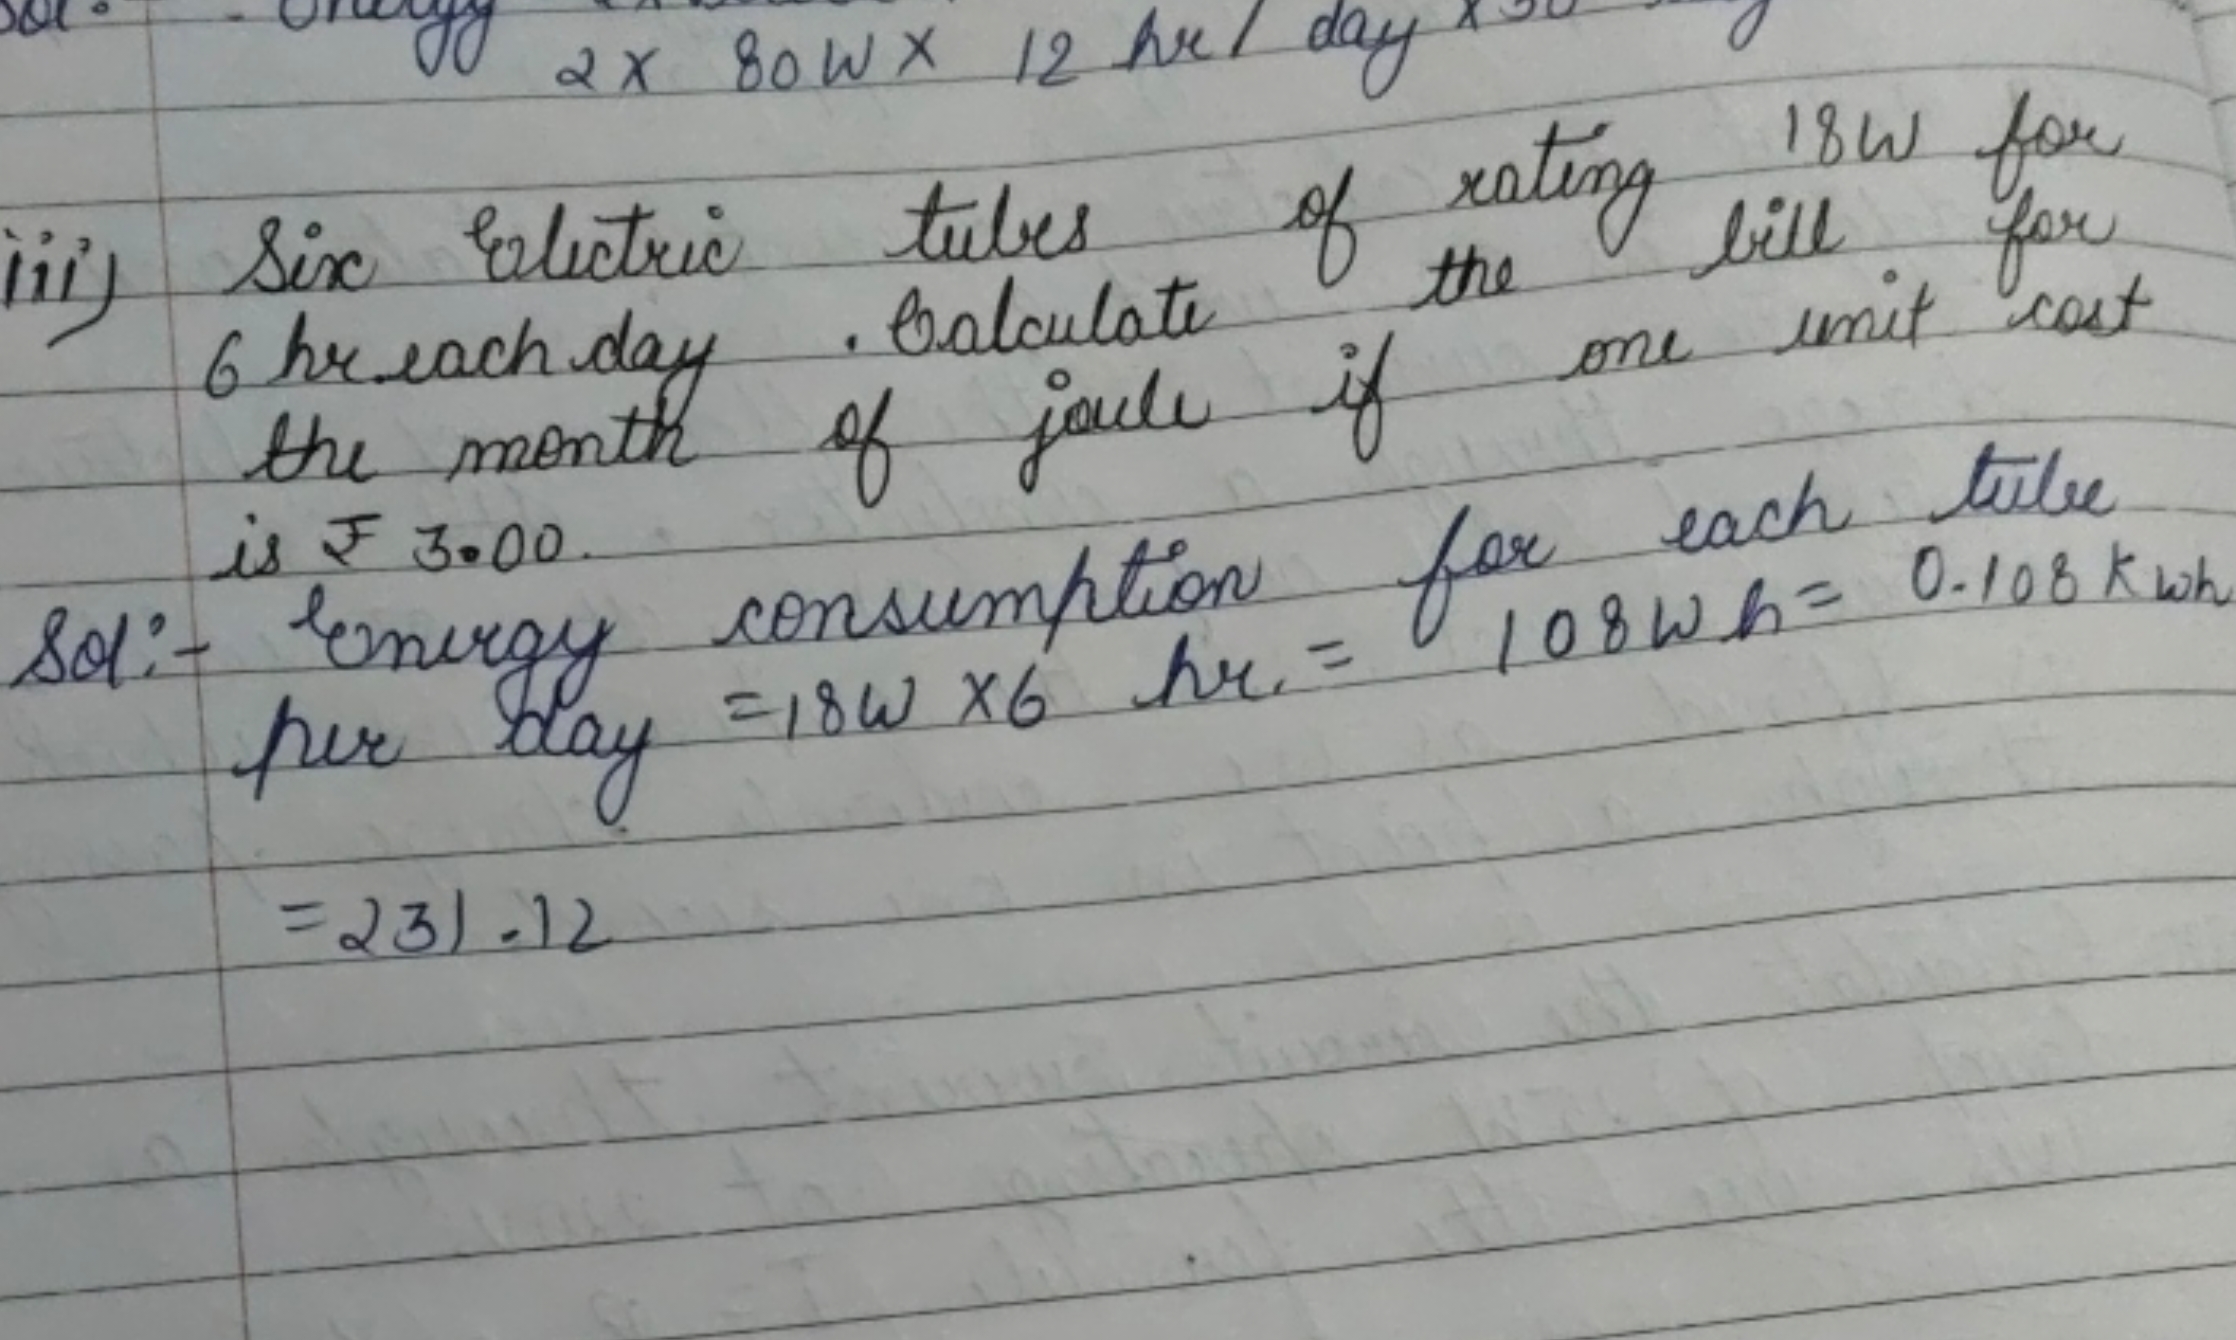 Sol:- Energy
2 x 80 W x 12 hr / day x 30
iii) Six Electric tubes of rating 18W for
6 hr each day . Calculate the bill for
the month of joule if one unit cost
is ₹ 3.00.
Sol:- Energy consumption for each tube
per day = 18W x 6 hr. = 108 W h = 0.108 K wh
= 231.12